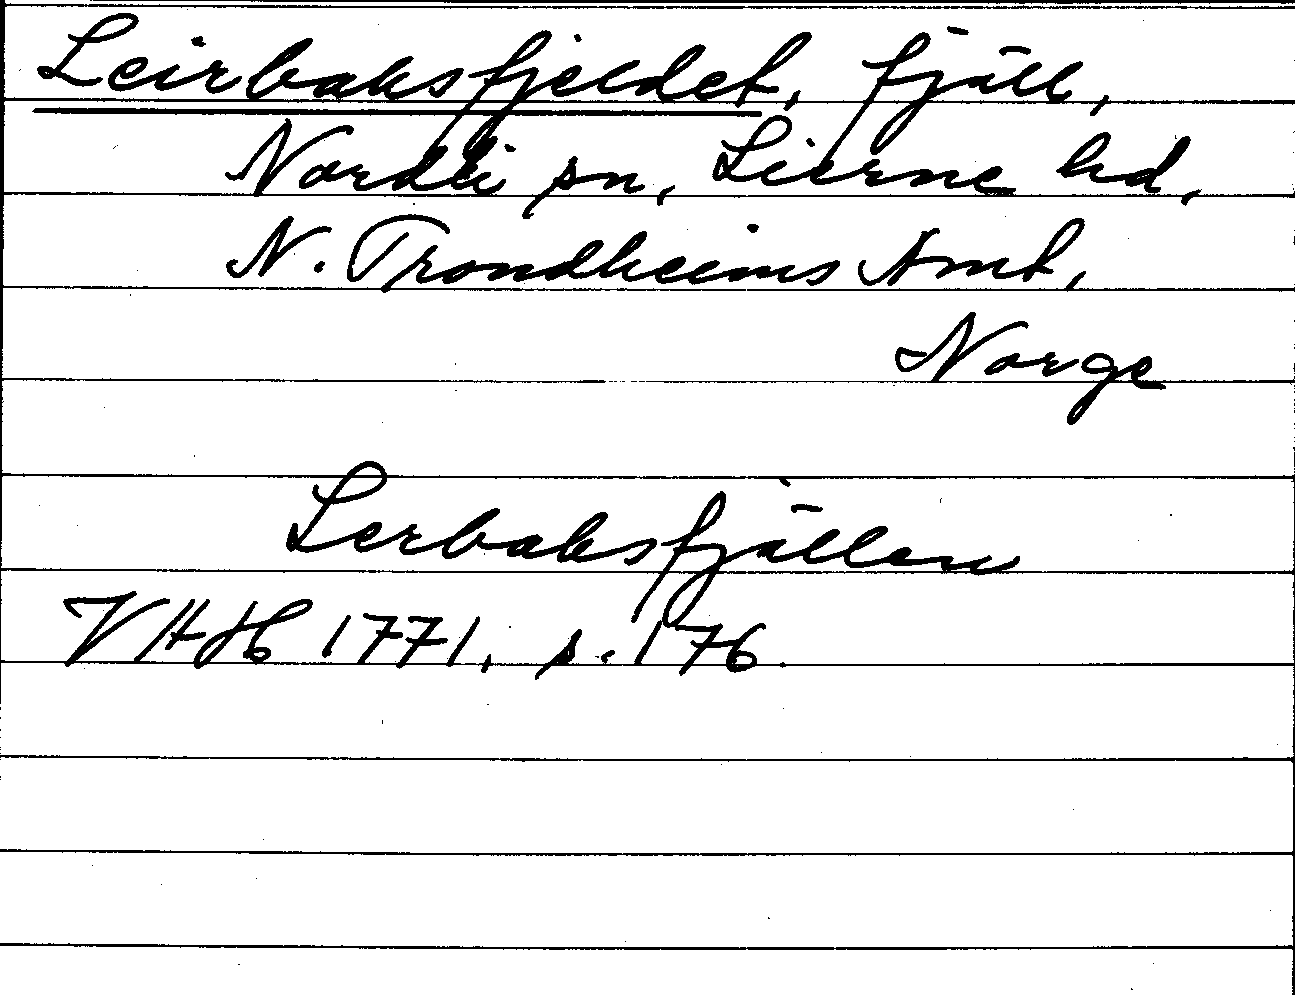 Leirbaksfjeldet, fjäll,
Nordli sn, Lierne hd,
N. Trondheims Amt,
Norge
Lerbaksfjällen
VHH 1771, s. 176.